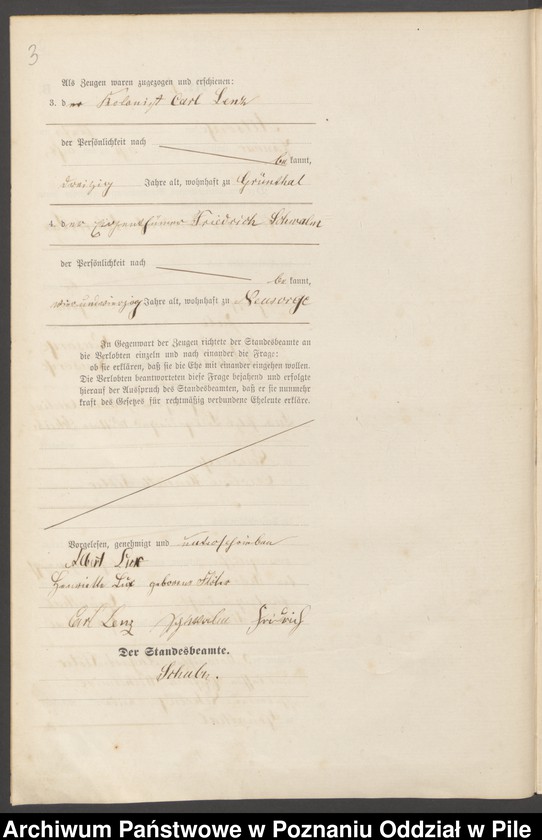 3
Als Zeugen waren zugezogen und erschienen:
3. der Kolonist Carl Lenz
der Persönlichkeit nach
be kannt,
dreißig Jahre alt, wohnhaft zu Grünthal
4. der Eigenthümer Friedrich Schwalm
der Persönlichkeit nach
be kannt,
vierundvierzig Jahre alt, wohnhaft zu Neusorge
In Gegenwart der Zeugen richtete der Standesbeamte an
die Verlobten einzeln und nach einander die Frage:
ob sie erklären, daß sie die Ehe mit einander eingehen wollen.
Die Verlobten beantworteten diese Frage bejahend und erfolgte
hierauf der Ausspruch des Standesbeamten, daß er sie nunmehr
kraft des Gesetzes für rechtmäßig verbundene Eheleute erkläre.
Vorgelesen, genehmigt und unterschrieben
Albert
Henriette Lüx geborene
Carl Lenz Schwalm Fridrich
Der Standesbeamte.
Archiwum Państwowe w Poznaniu Oddział w Pile